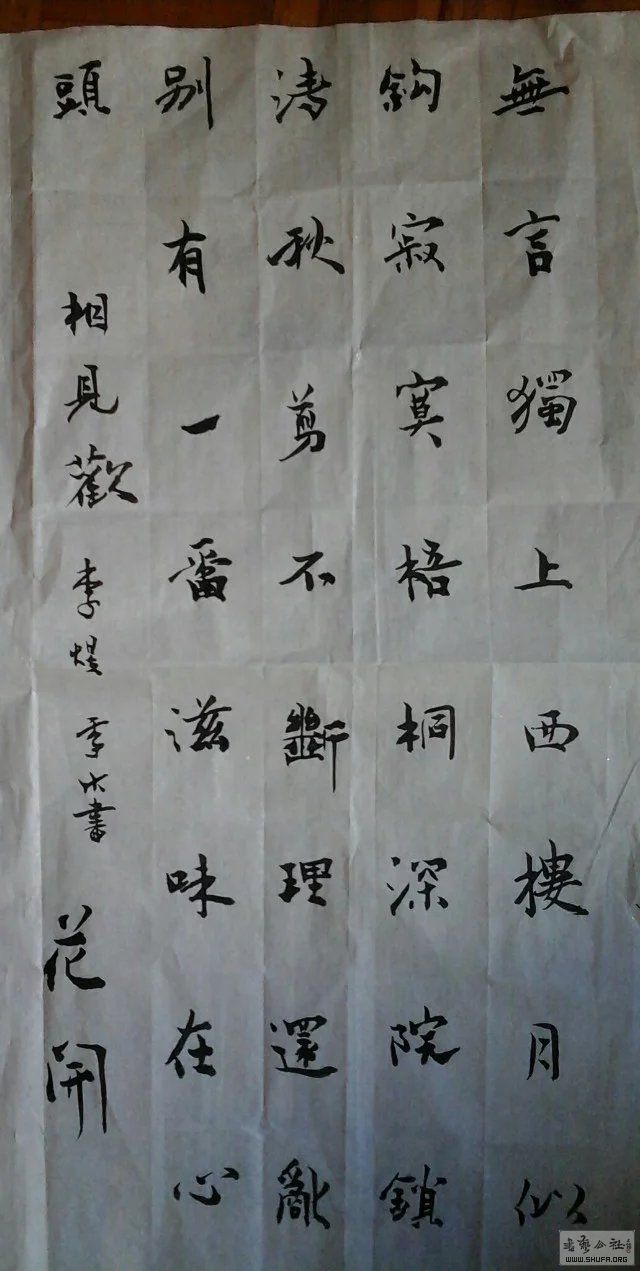 無言獨上西樓月似
鈎寂寞梧桐深院鎖
清秋剪不斷理還亂
别有一番滋味在心
頭 相見歡 李煜 書 花開
書藝公社
WWW.SHUFA.ORG